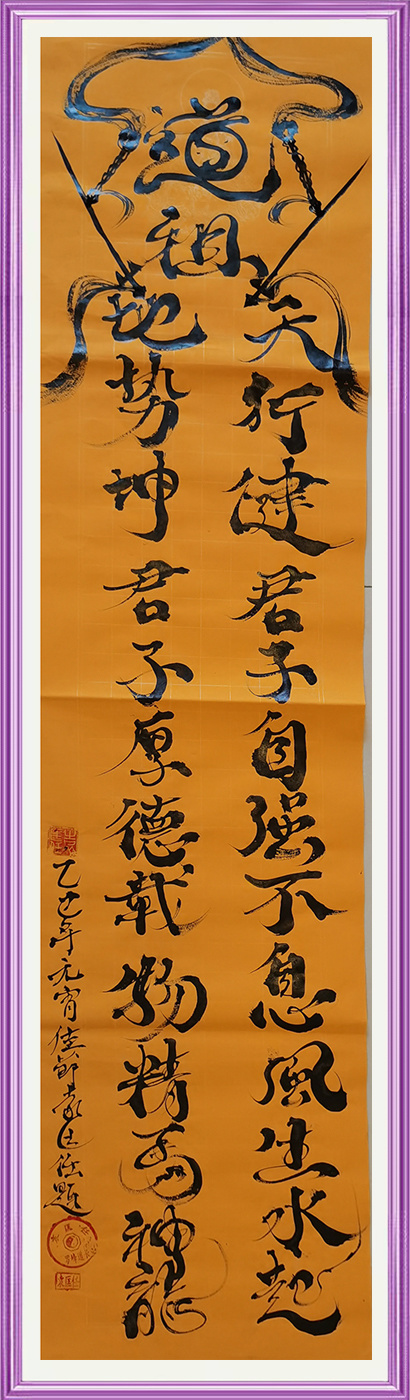 道祖
天行健君子自强不息風生水起
地势坤君子厚德載物精神龍
乙巳年元宵佳節題